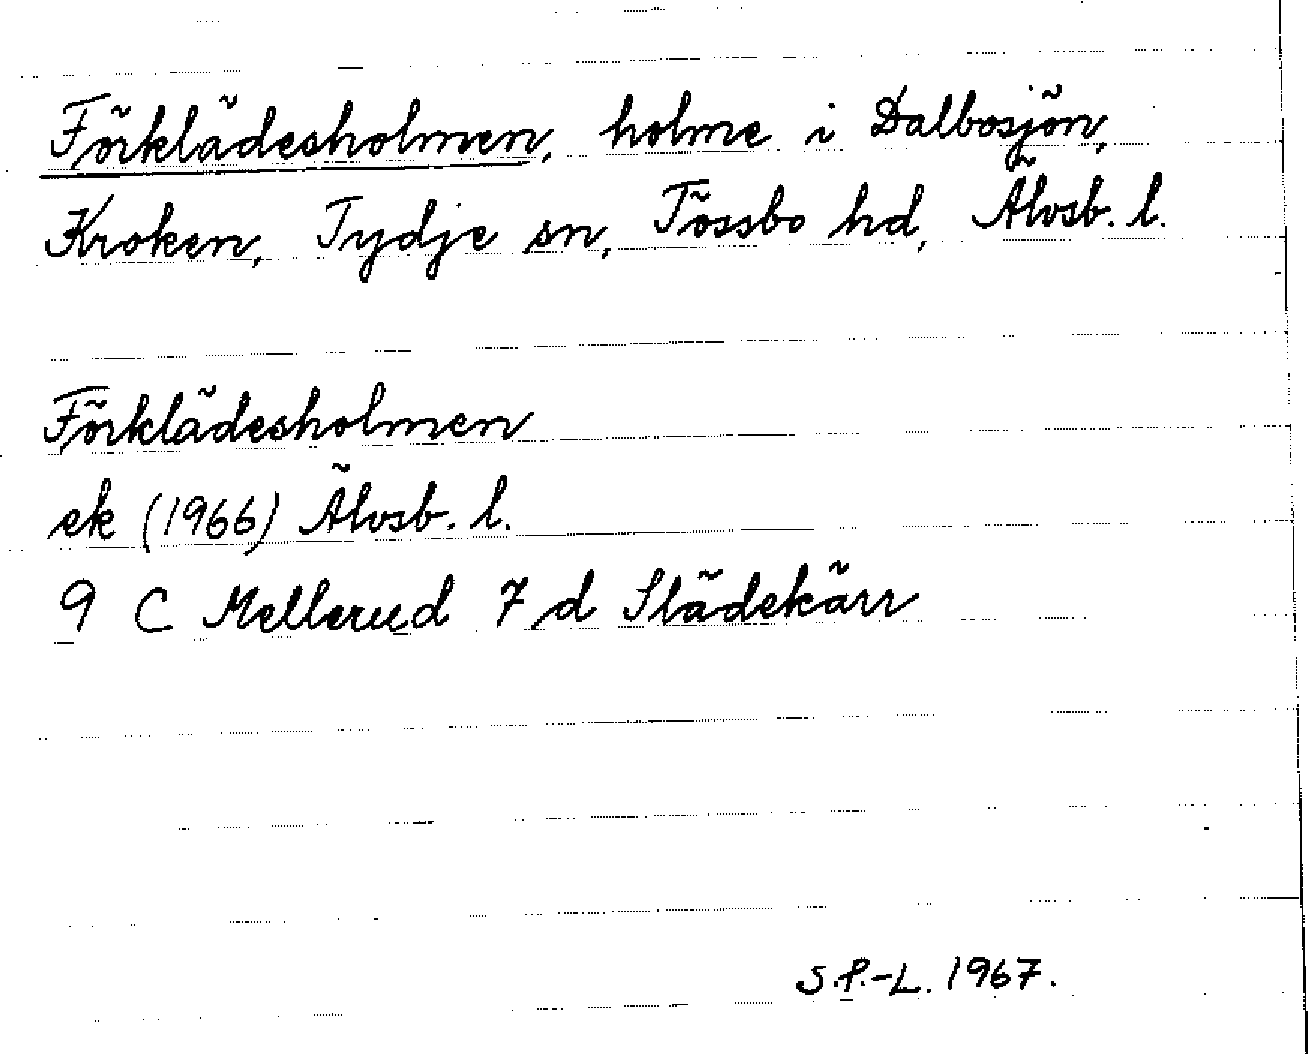 Förklädesholmen, holme i Dalbosjön,
Kroken, Tydje sn, Tössbo hd, Älvsb. l.
Förklädesholmen
ek (1966) Älvsb. l.
9 C Mellerud 7 d Slädekärr
S.P.-L. 1967.